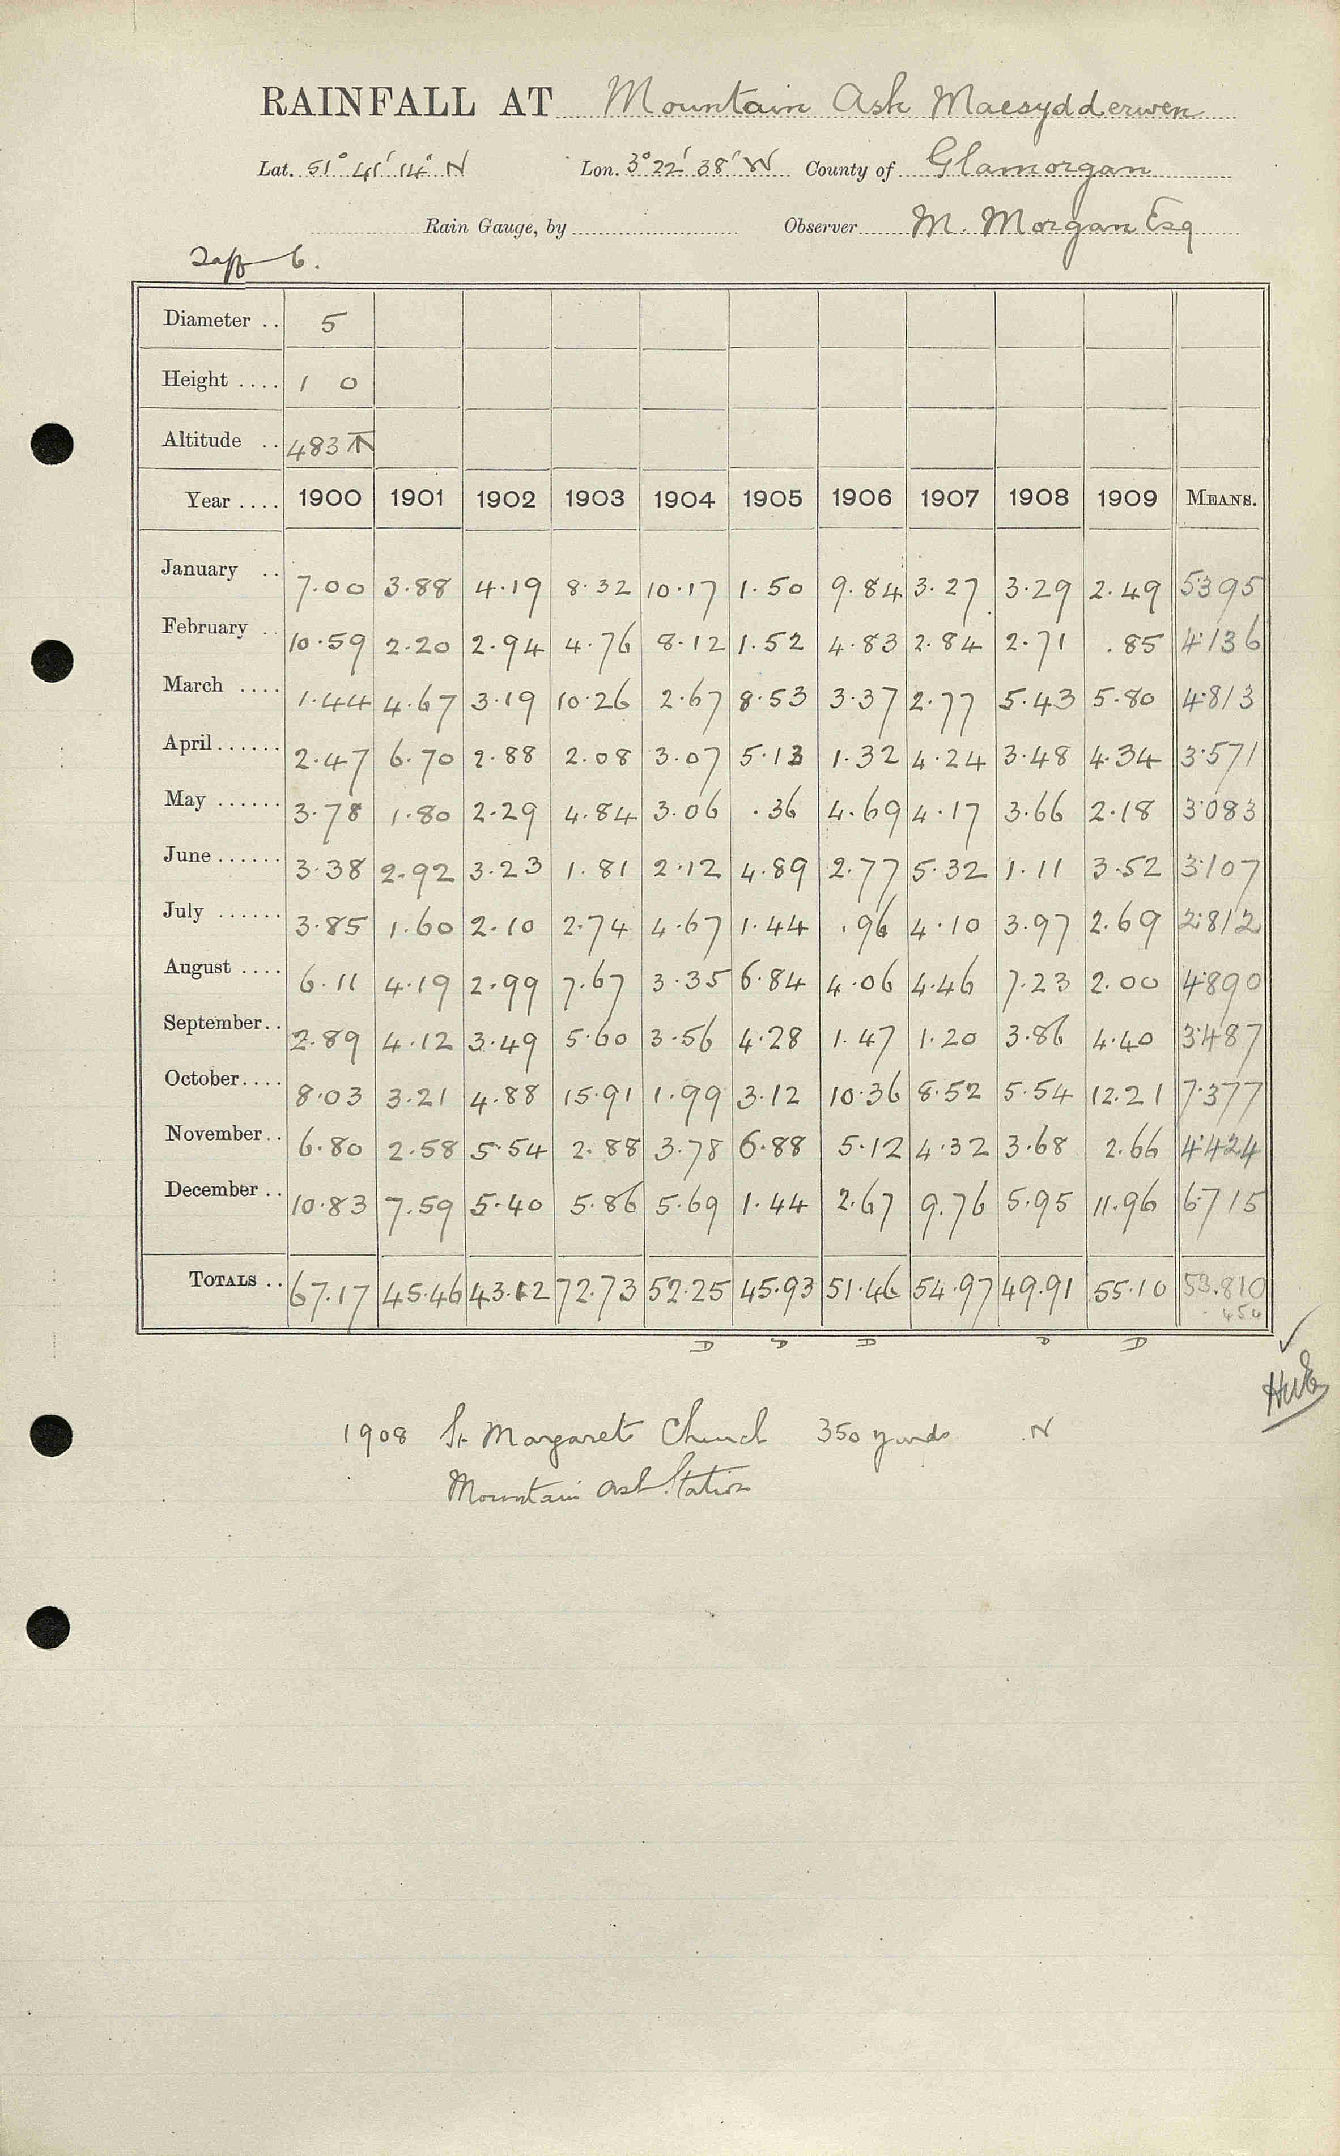 RAINFALL AT Mountain Ash Maesydderwen
Lat. 51° 41' 14" N Lon. 3° 22' 38" W County of Glamorgan
Rain Gauge, by Observer M. Morgan Esq
Taff 6.
Diameter .. 5
Height .... 1 0
Altitude .. 483
Year .... 1900 1901 1902 1903 1904 1905 1906 1907 1908 1909 MEANS.
January .. 7.00 3.88 4.19 8.32 10.17 1.50 9.84 3.27 3.29 2.49 5.395
February .. 10.59 2.20 2.94 4.76 8.12 1.52 4.83 2.84 2.71 .85 4.136
March .... 1.44 4.67 3.19 10.26 2.67 8.53 3.37 2.77 5.43 5.80 4.813
April ...... 2.47 6.70 2.88 2.08 3.07 5.13 1.32 4.24 3.48 4.34 3.571
May ...... 3.78 1.80 2.29 4.84 3.06 .36 4.69 4.17 3.66 2.18 3.083
June ...... 3.38 2.92 3.23 1.81 2.12 4.89 2.77 5.32 1.11 3.52 3.107
July ...... 3.85 1.60 2.10 2.74 4.67 1.44 .96 4.10 3.97 2.69 2.812
August .... 6.11 4.19 2.99 7.67 3.35 6.84 4.06 4.46 7.23 2.00 4.890
September .. 2.89 4.12 3.49 5.60 3.56 4.28 1.47 1.20 3.86 4.40 3.487
October .... 8.03 3.21 4.88 15.91 1.99 3.12 10.36 8.52 5.54 12.21 7.377
November .. 6.80 2.58 5.54 2.88 3.78 6.88 5.12 4.32 3.68 2.66 4.424
December .. 10.83 7.59 5.40 5.86 5.69 1.44 2.67 9.76 5.95 11.96 6.715
TOTALS .. 67.17 45.46 43.12 72.73 52.25 45.93 51.46 54.97 49.91 55.10 53.810
D D D D D
1908 St Margarets Church 350 yards N
Mountain Ash Station